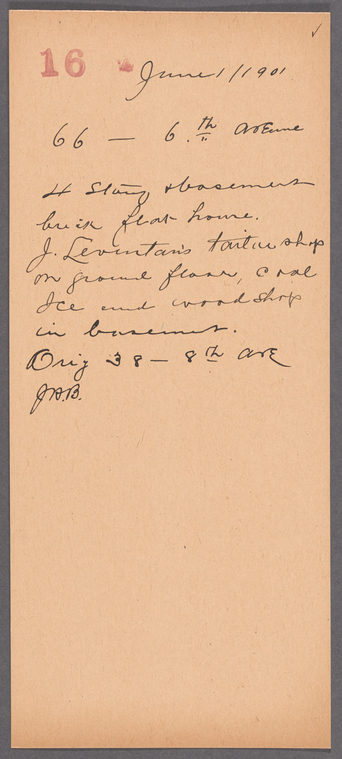 16
June 1/1901
66 — 6th Avenue
4 Story & basement
brick flat house.
J. Leventan's tailor shop
on ground floor, coal
Ice and wood shop
in basement.
Orig 38 — 8th Ave
J.A.B.